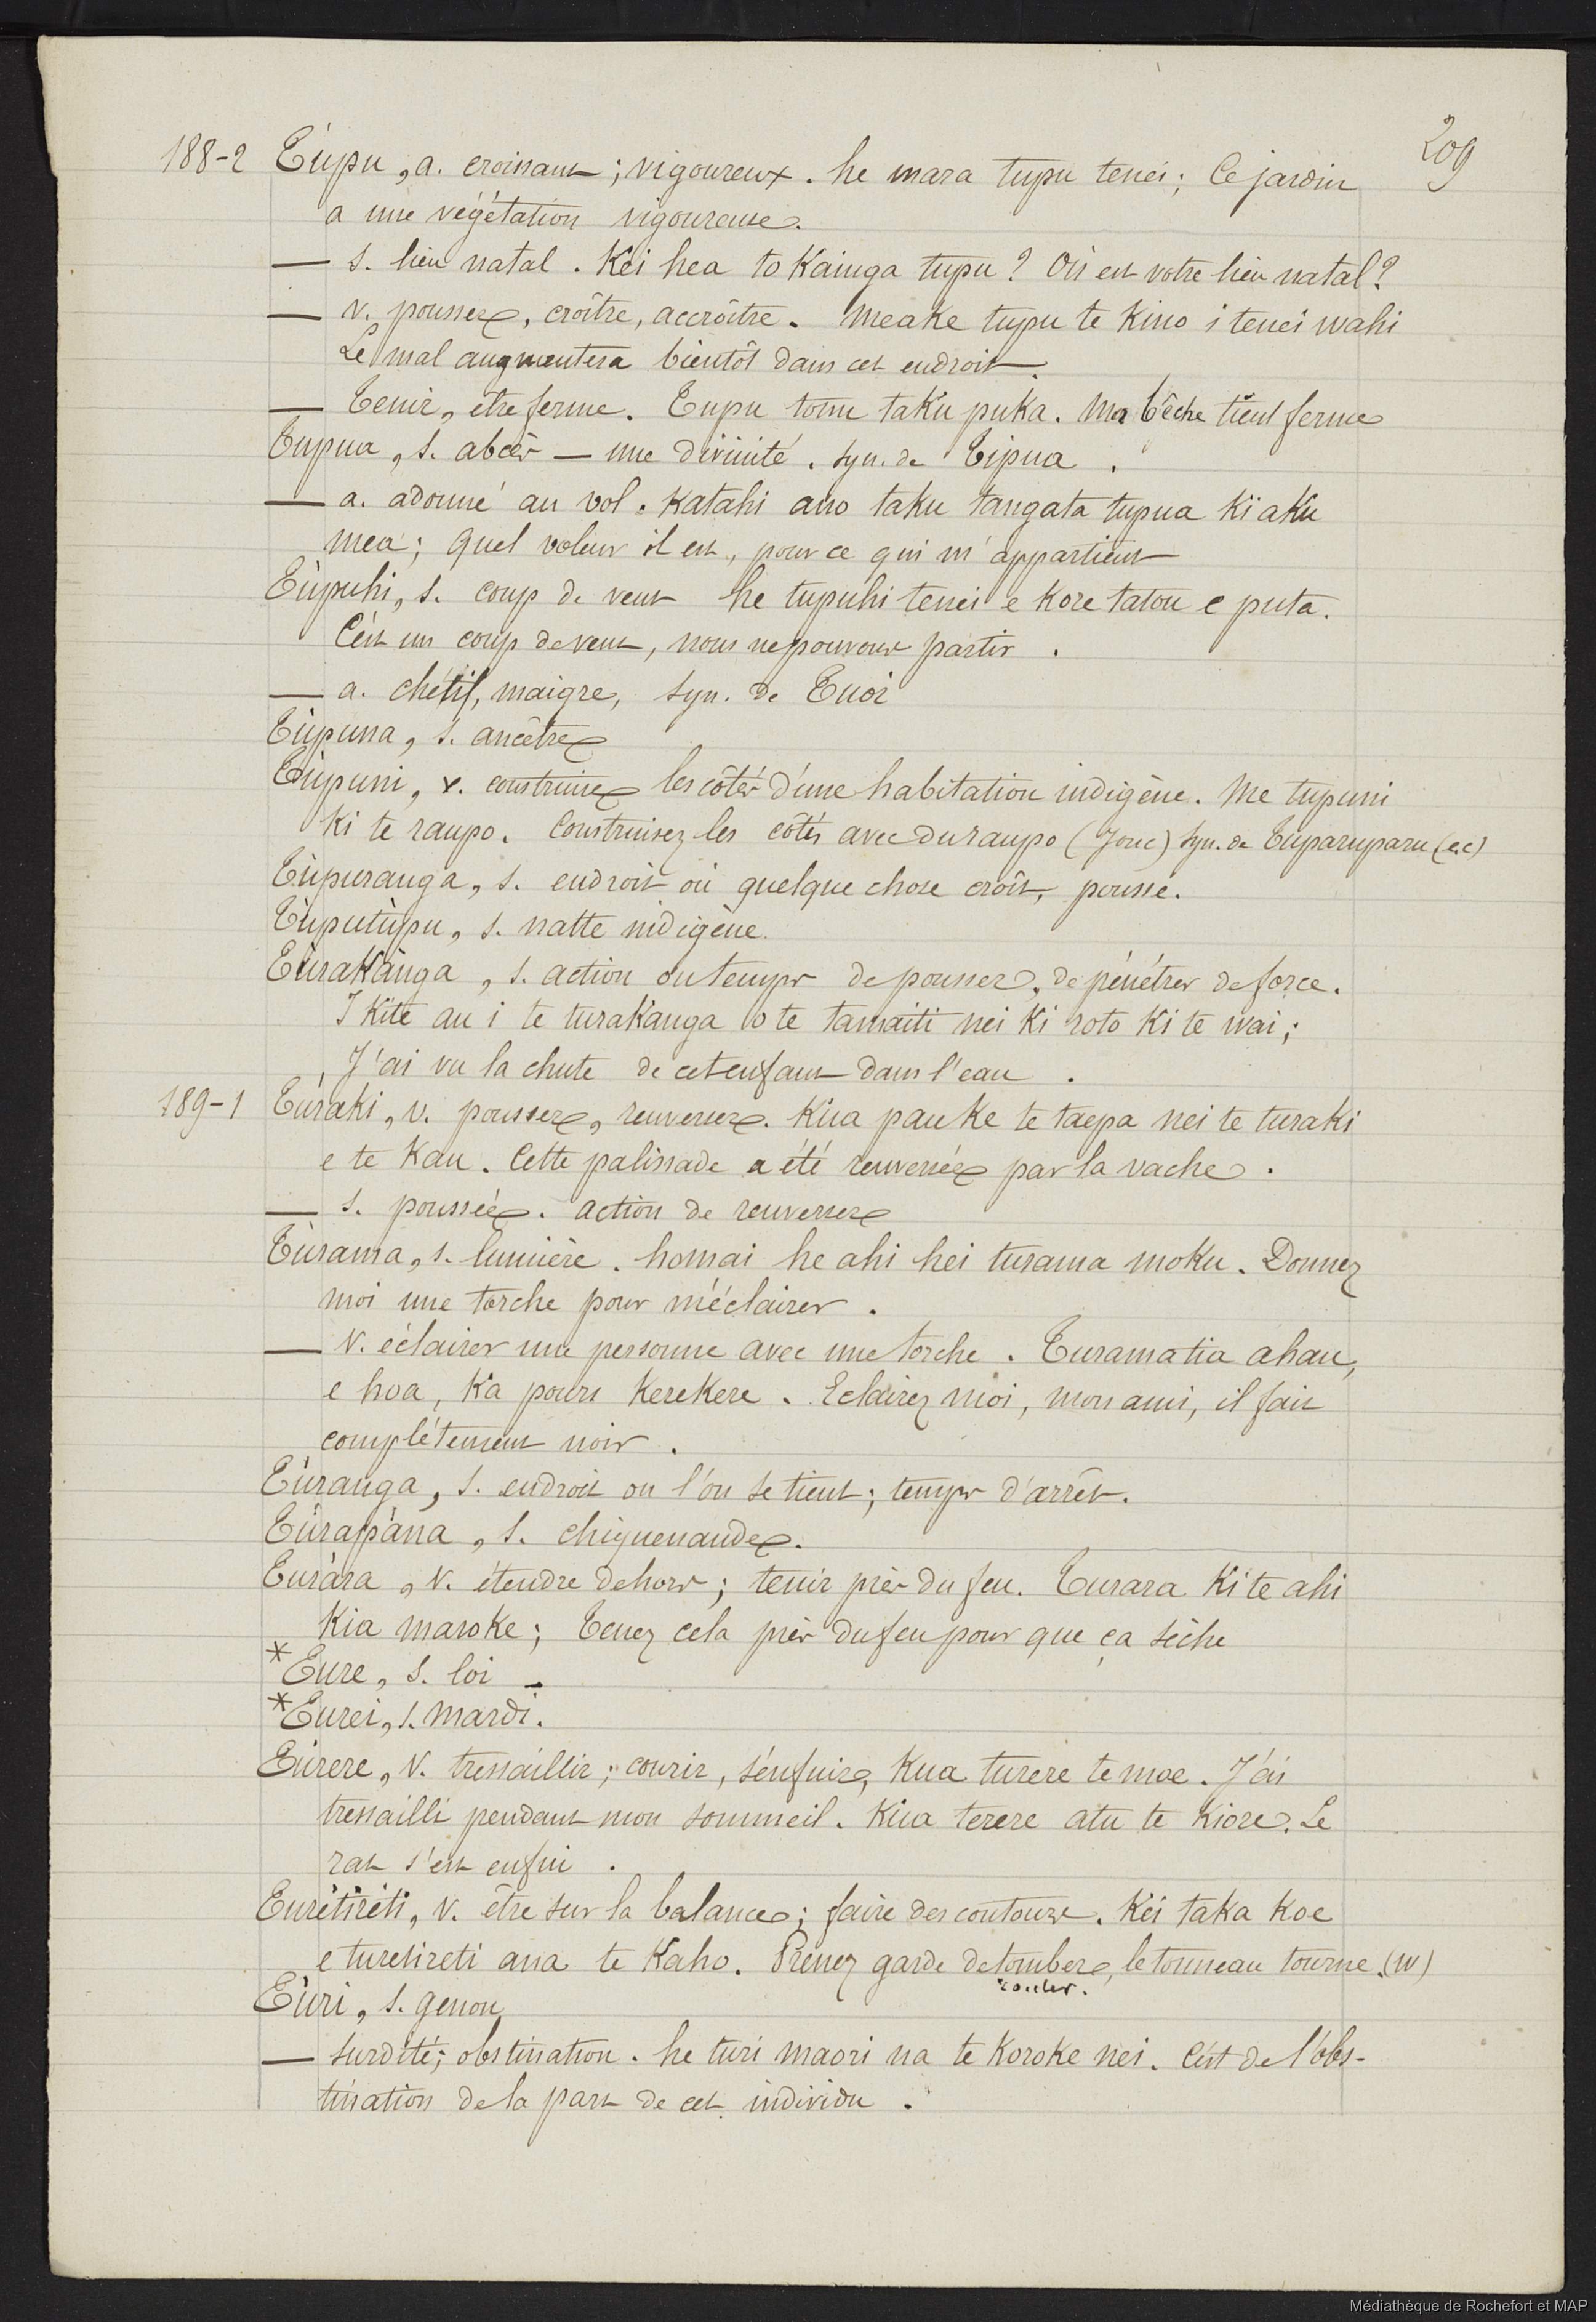 209
188-2 Tùpu, a. croissant; vigoureux. he mara tupu tenei; Ce jardin
a une végétation vigoureuse.
— s. lieu natal. Kei hea to Kainga tupu? Où est votre lieu natal?
— v. pousser, croître, accroître. Meake tupu te Kino i tenei wahi
Le mal augmentera bientôt dans cet endroit.
— Tenir, être ferme. Tupu tonu taku puka. Ma bêche tient ferme
Tupua, s. abcès — une divinité. syn. de Tipua.
— a. adonné au vol. Katahi ano taku tangata tupua Ki aku
mea; Quel voleur il est, pour ce qui m'appartient
Tùpuhi, s. coup de vent he tupuhi tenei e Kore tatou e puta.
C'est un coup de vent, nous ne pouvons partir.
— a. chétif, maigre, syn. de Tuoi
Tùpuna, s. ancêtre
Tùpuni, v. construire les côtés d'une habitation indigène. Me tupuni
Ki te raupo. Construisez les côtés avec du raupo (Jonc) syn. de Tuparuparu (e.c)
Tùpuranga, s. endroit où quelque chose croît, pousse.
Tùputùpu, s. natte indigène.
TùraKànga, s. action ou temps de pousser, de pénétrer de force.
I Kite au i te turaKanga o te tamaiti nei Ki roto Ki te wai;
J'ai vu la chute de cet enfant dans l'eau.
189-1 Tùraki, v. pousser, renverser. Kua pau Ke te taepa nei te turaki
e te Kau. Cette palissade a été renversée par la vache.
— s. poussée. action de renverser
Tùrama, s. lumière. homai he ahi hei turama moKu. Donnez
moi une torche pour m'éclairer.
— v. éclairer une personne avec une torche. Turamatia ahau,
e hoa, Ka pouri KereKere. Eclairez moi, mon ami, il fait
complétement noir.
Tùranga, s. endroit ou l'on se tient; temps d'arrêt.
Tùrapàna, s. chiquenaude.
Turàra, v. étendre dehors; tenir près du feu. Turara Ki te ahi
Kia maroke; Tenez cela près du feu pour que ça sèche
* Ture, s. loi
* Turei, s. Mardi.
Tùrere, v. tressaillir; courir, s'enfuire, Kua turere te moe. J'ai
tressailli pendant mon sommeil. Kua terere atu te Kiore. Le
rat s'est enfui.
Turètirèti, v. être sur la balance; faire des contours. Kei taka Koe
e turetireti ana te Kaho. Prenez garde de tomber, le tonneau tourne. (W)
rouler.
Tùri, s. genou
— surdité; obstination. he turi maori na te KoroKe nei. C'est de l'obs-
tination de la part de cet individu.
Médiathèque de Rochefort et MAP